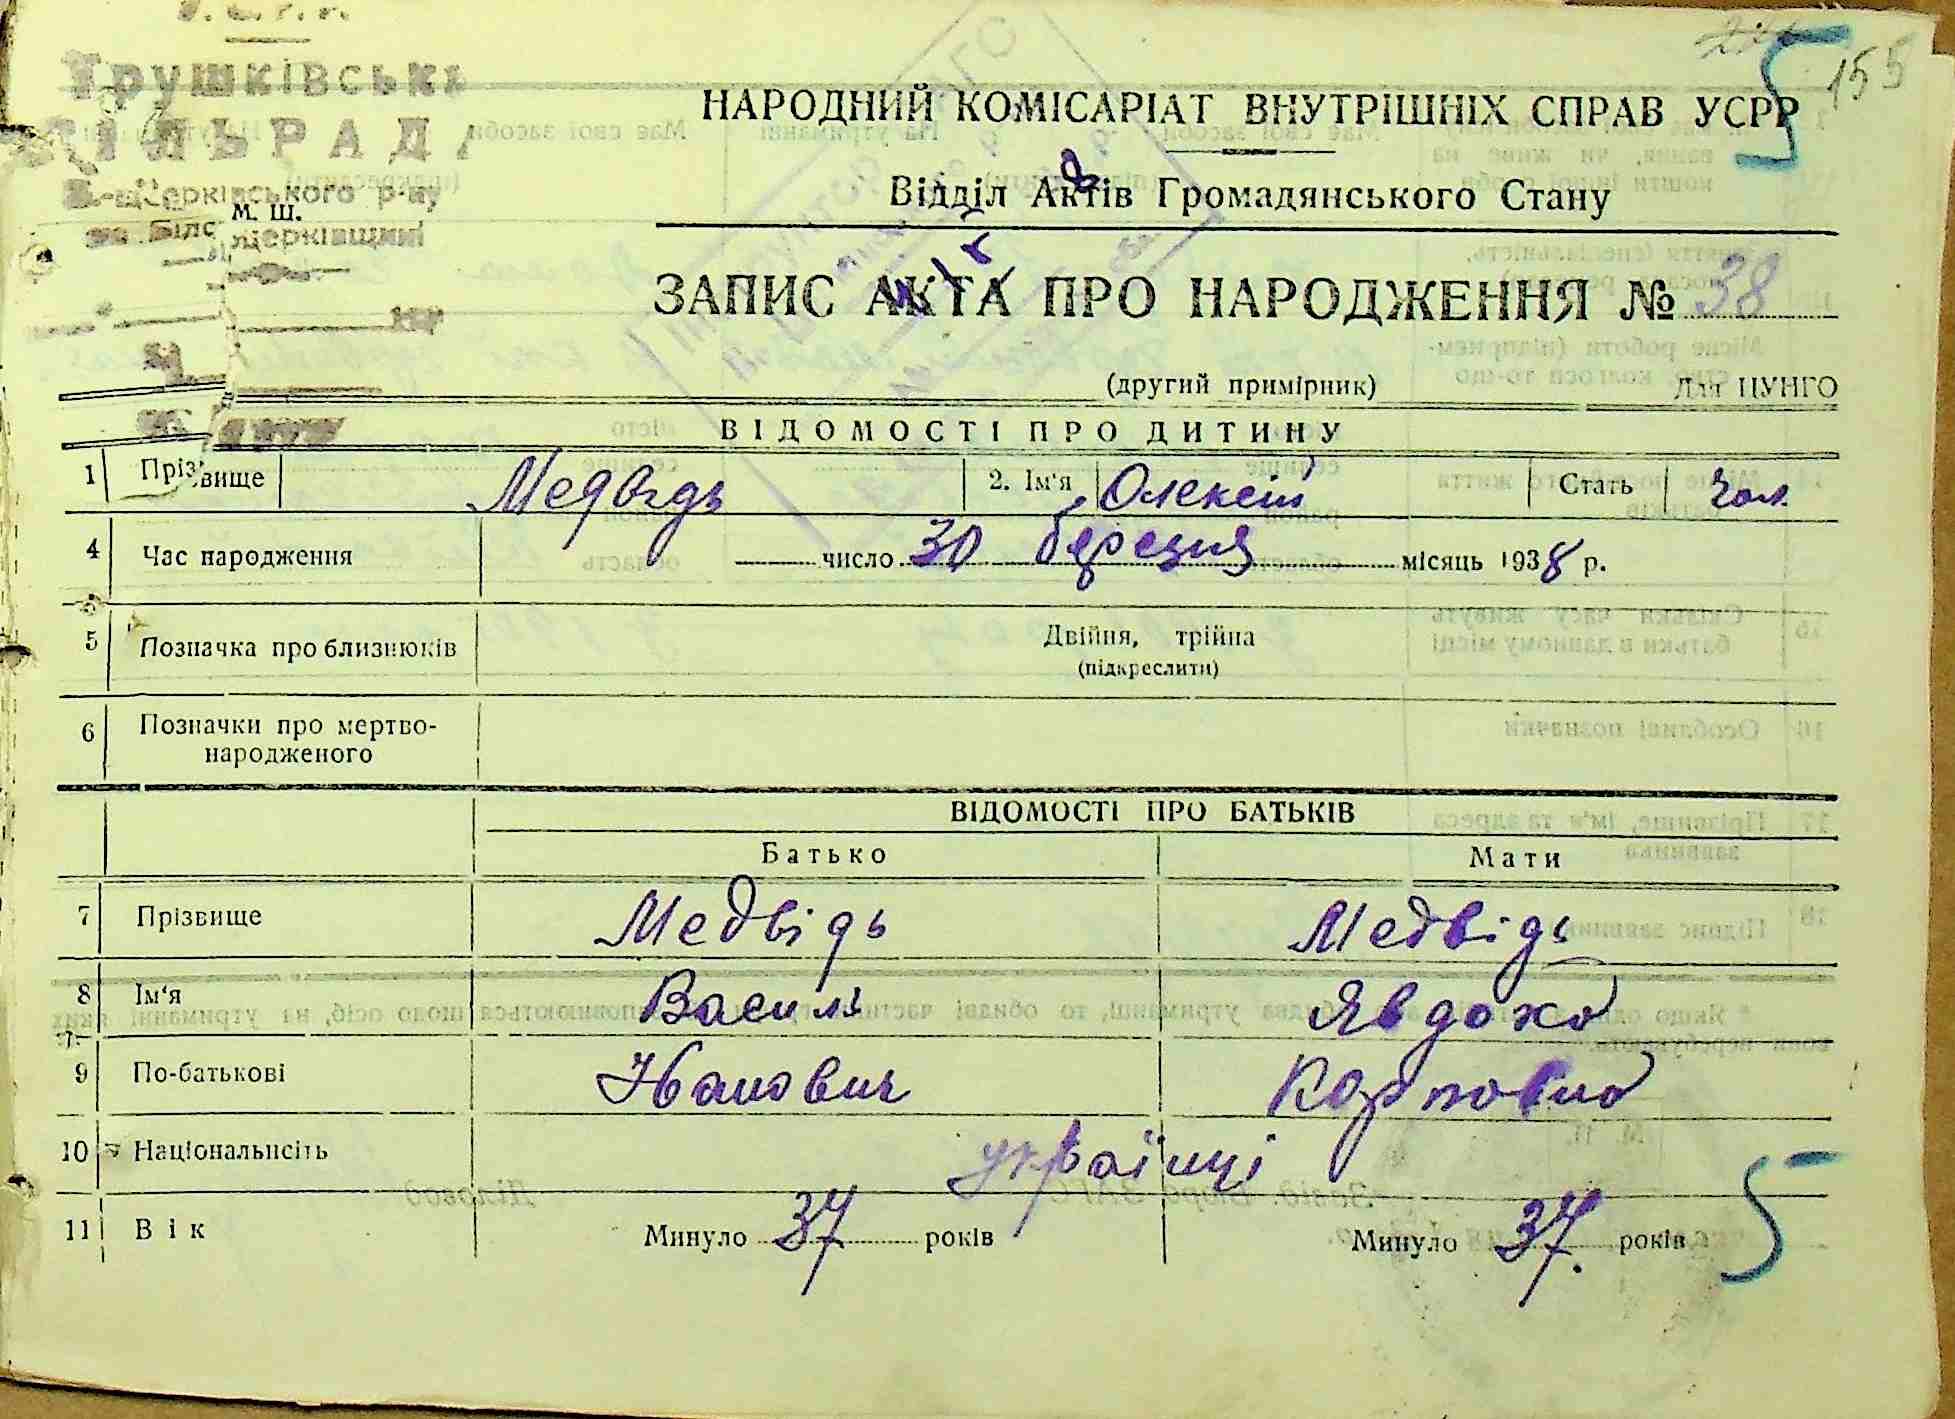 У.С.Р.Р.
Трушківська
СІЛЬРАДА
Б-Церківського р-ну
на Білоцерківщині
М. Ш.
155
5
НАРОДНИЙ КОМІСАРІАТ ВНУТРІШНІХ СПРАВ УСРР
Відділ Актів Громадянського Стану
ЗАПИС АКТА ПРО НАРОДЖЕННЯ № 38
(другий примірник) Для ЦУНГО
ВІДОМОСТІ ПРО ДИТИНУ
1 Прізвище Медвідь 2. Ім'я Олексій Стать чол.
4 Час народження число 30 березня місяць 1938 р.
5 Позначка про близнюків Двійня, трійна
(підкреслити)
6 Позначки про мертво-
народженого
ВІДОМОСТІ ПРО БАТЬКІВ
Батько Мати
7 Прізвище Медвідь Медвідь
8 Ім'я Василь Явдоха
9 По-батькові Іванович Карповна
10 Національність українці
11 Вік Минуло 37 років Минуло 37. років
5